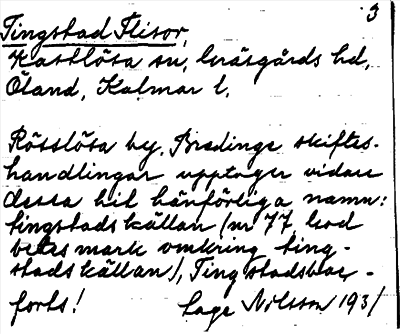 3
Tingstad Flisor,
Kastlösa sn, Gräsgårds hd,
Öland, Kalmar l.
Rösslösa by, Bredinge skiftes-
handlingar upptager vidare
dessa hit hänförliga namn:
tingstads källan (nr 77, hod
betesmark omkring ting-
stads källan), Tingstadsbac, -
forts! Lage Nilsson 193/